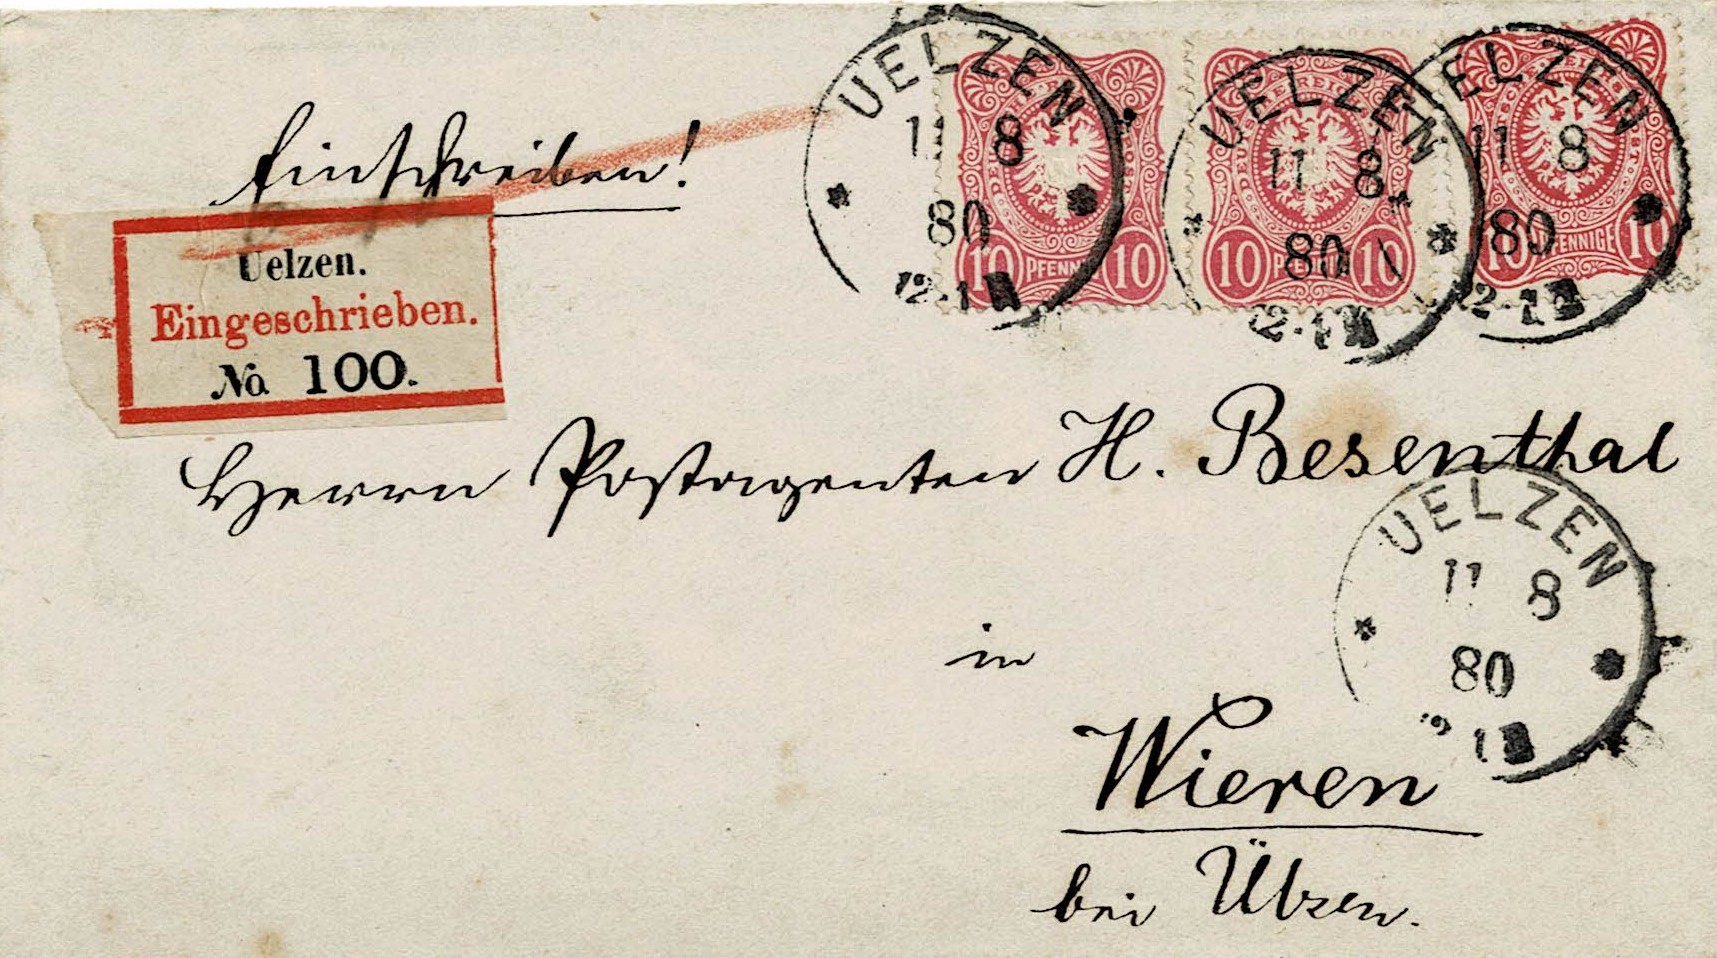 Einschreiben!
UELZEN
11 8
80
12-1N
10 PFENNIGE 10
UELZEN
11 8
80
12-1N
DEUTSCHE REICHS-POST
10 PFENNIGE 10
UELZEN
11 8
80
12-1N
10 PFENNIGE 10
Uelzen.
Eingeschrieben.
No. 100.
Herrn Postagenten H. Besenthal
UELZEN
11 8
80
in
Wieren
bei Ülzen.